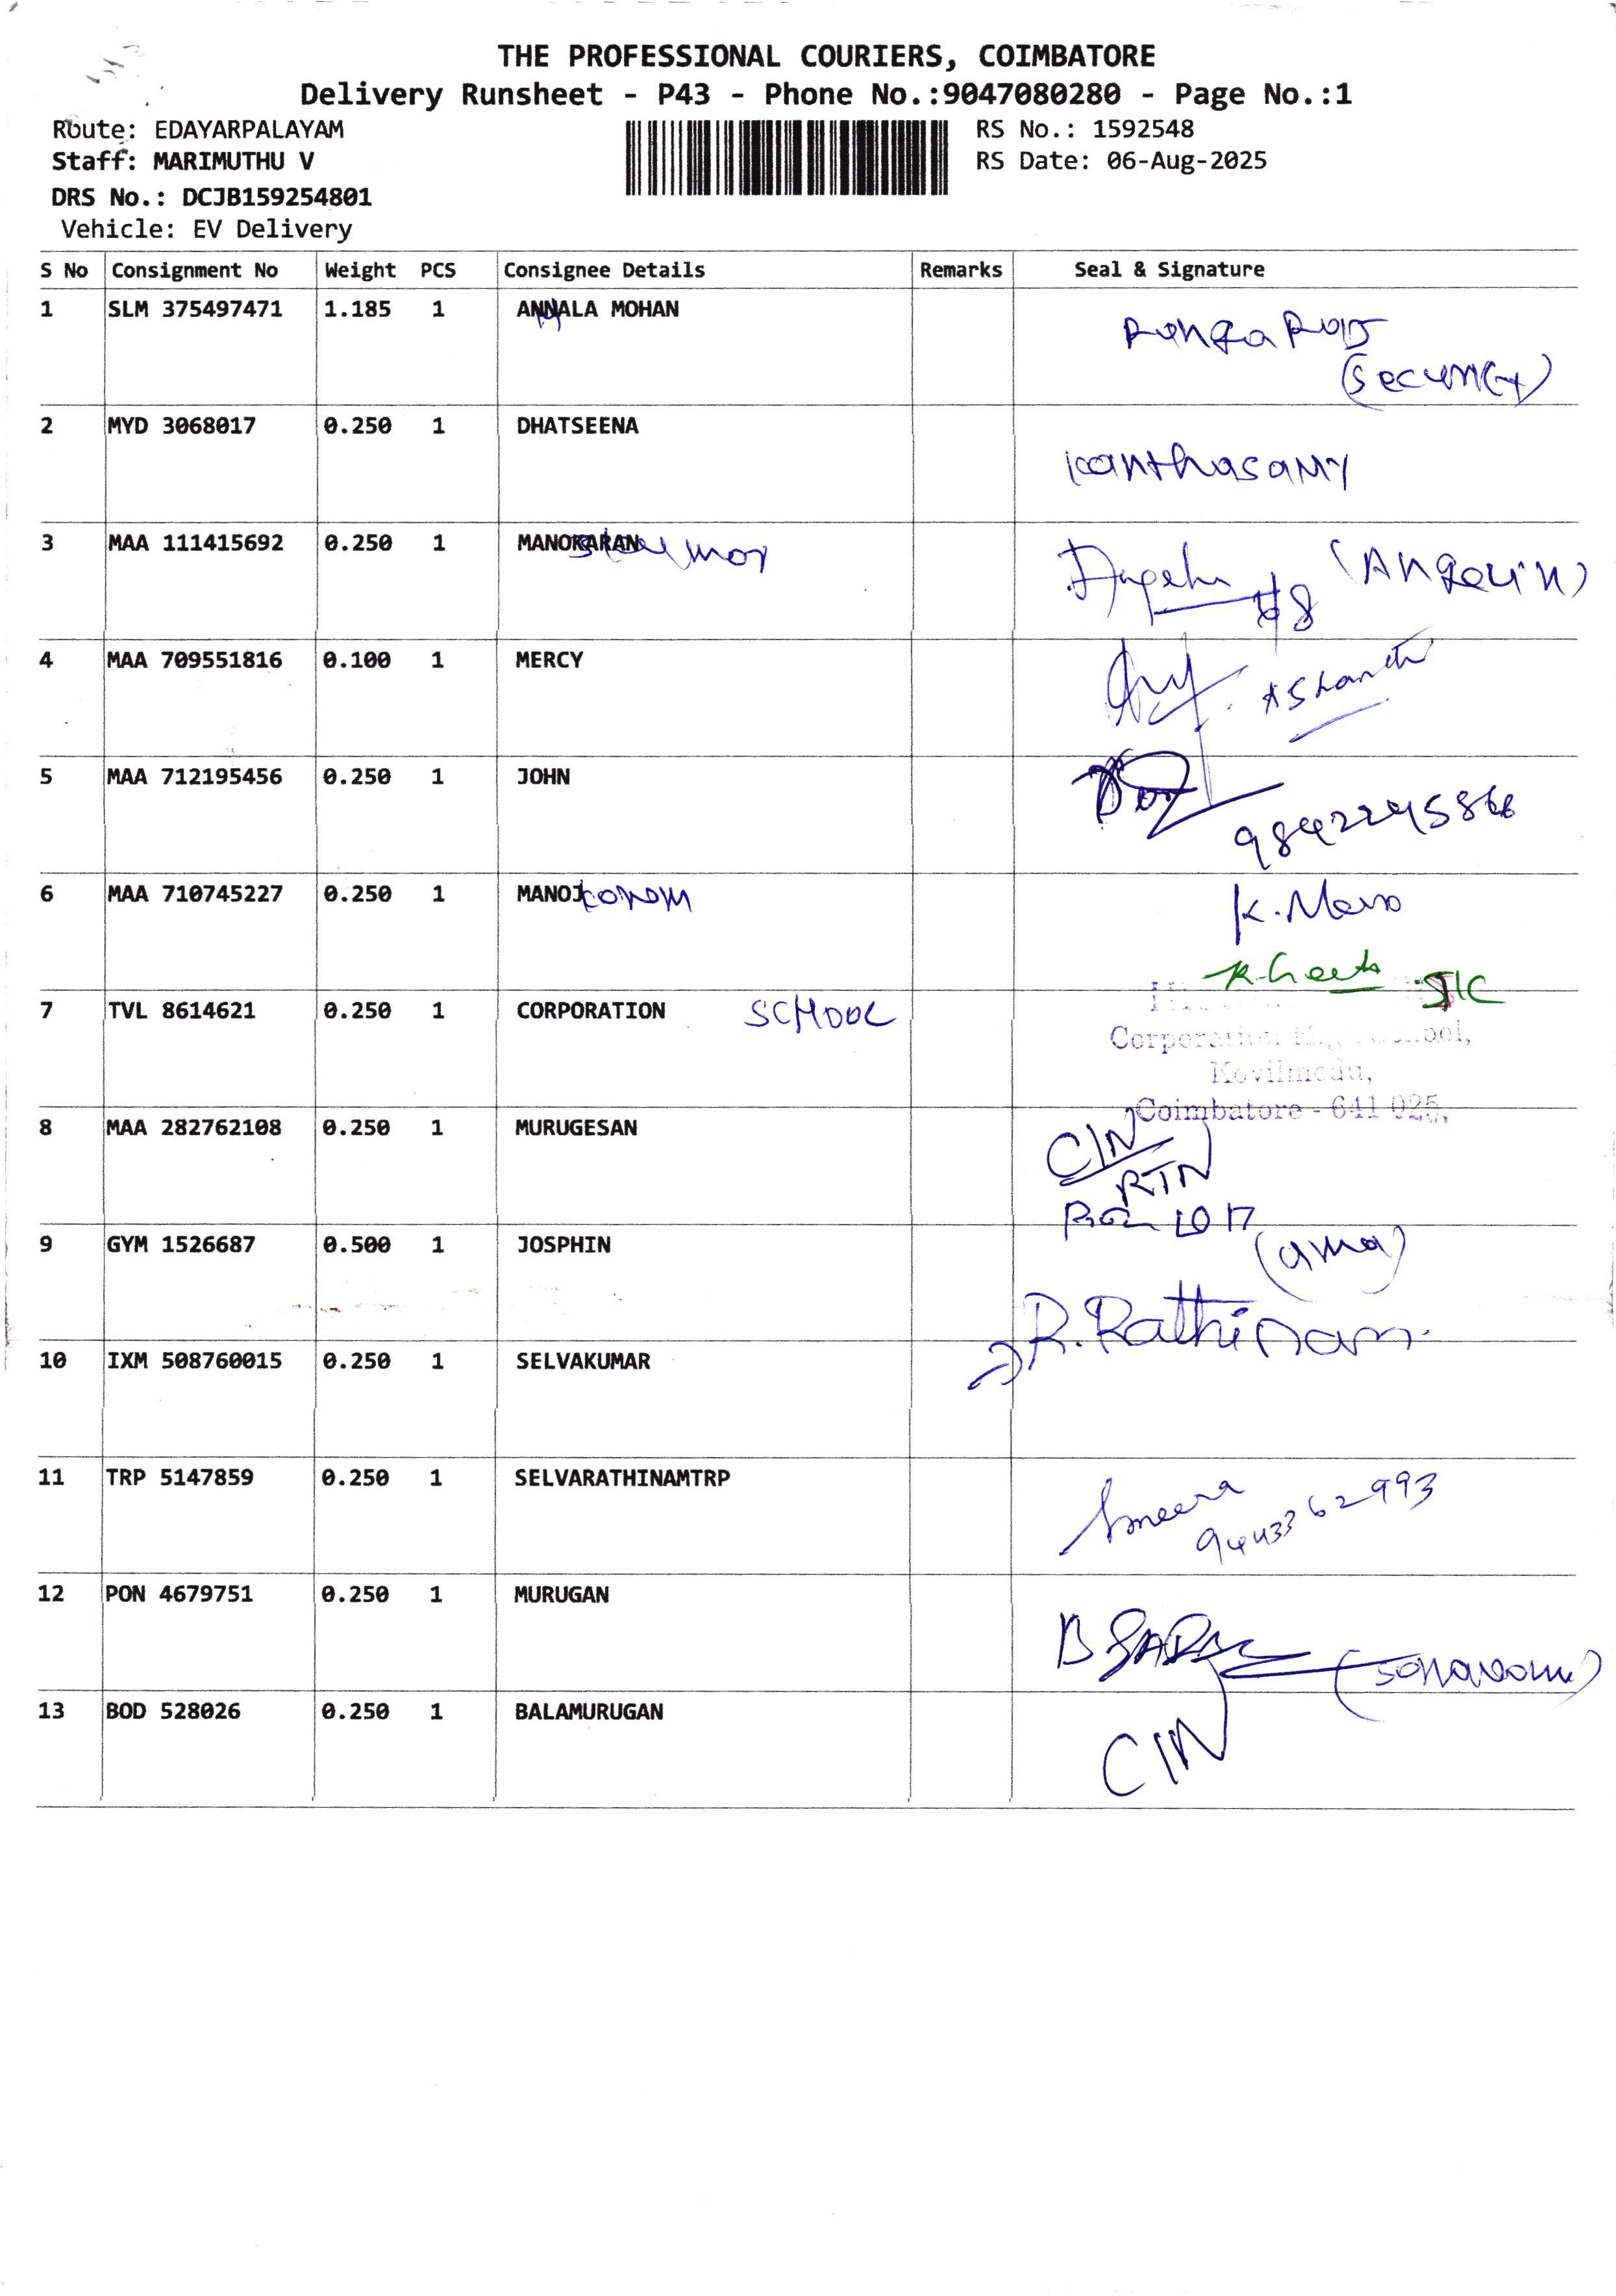 THE PROFESSIONAL COURIERS, COIMBATORE
Delivery Runsheet - P43 - Phone No.:9047080280 - Page No.:1
Route: EDAYARPALAYAM
RS No.: 1592548
Staff: MARIMUTHU V
RS Date: 06-Aug-2025
DRS No.: DCJB159254801
Vehicle: EV Delivery
S No Consignment No Weight PCS Consignee Details Remarks Seal & Signature
1 SLM 375497471 1.185 1 ANNALA MOHAN
(Security)
2 MYD 3068017 0.250 1 DHATSEENA
Kanthasamy
3 MAA 111415692 0.250 1 MANOKARAN
(Angelin)
4 MAA 709551816 0.100 1 MERCY
5 MAA 712195456 0.250 1 JOHN
6 MAA 710745227 0.250 1 MANOJ
K. Mano
7 TVL 8614621 0.250 1 CORPORATION SCHOOL
Corporation High School,
Kovilmedu,
Coimbatore - 641 025.
8 MAA 282762108 0.250 1 MURUGESAN
CIN
RTN
9 GYM 1526687 0.500 1 JOSPHIN
(uma)
R. Rathinam.
10 IXM 508760015 0.250 1 SELVAKUMAR
11 TRP 5147859 0.250 1 SELVARATHINAMTRP
Ameera
9443362993
12 PON 4679751 0.250 1 MURUGAN
13 BOD 528026 0.250 1 BALAMURUGAN
CIN